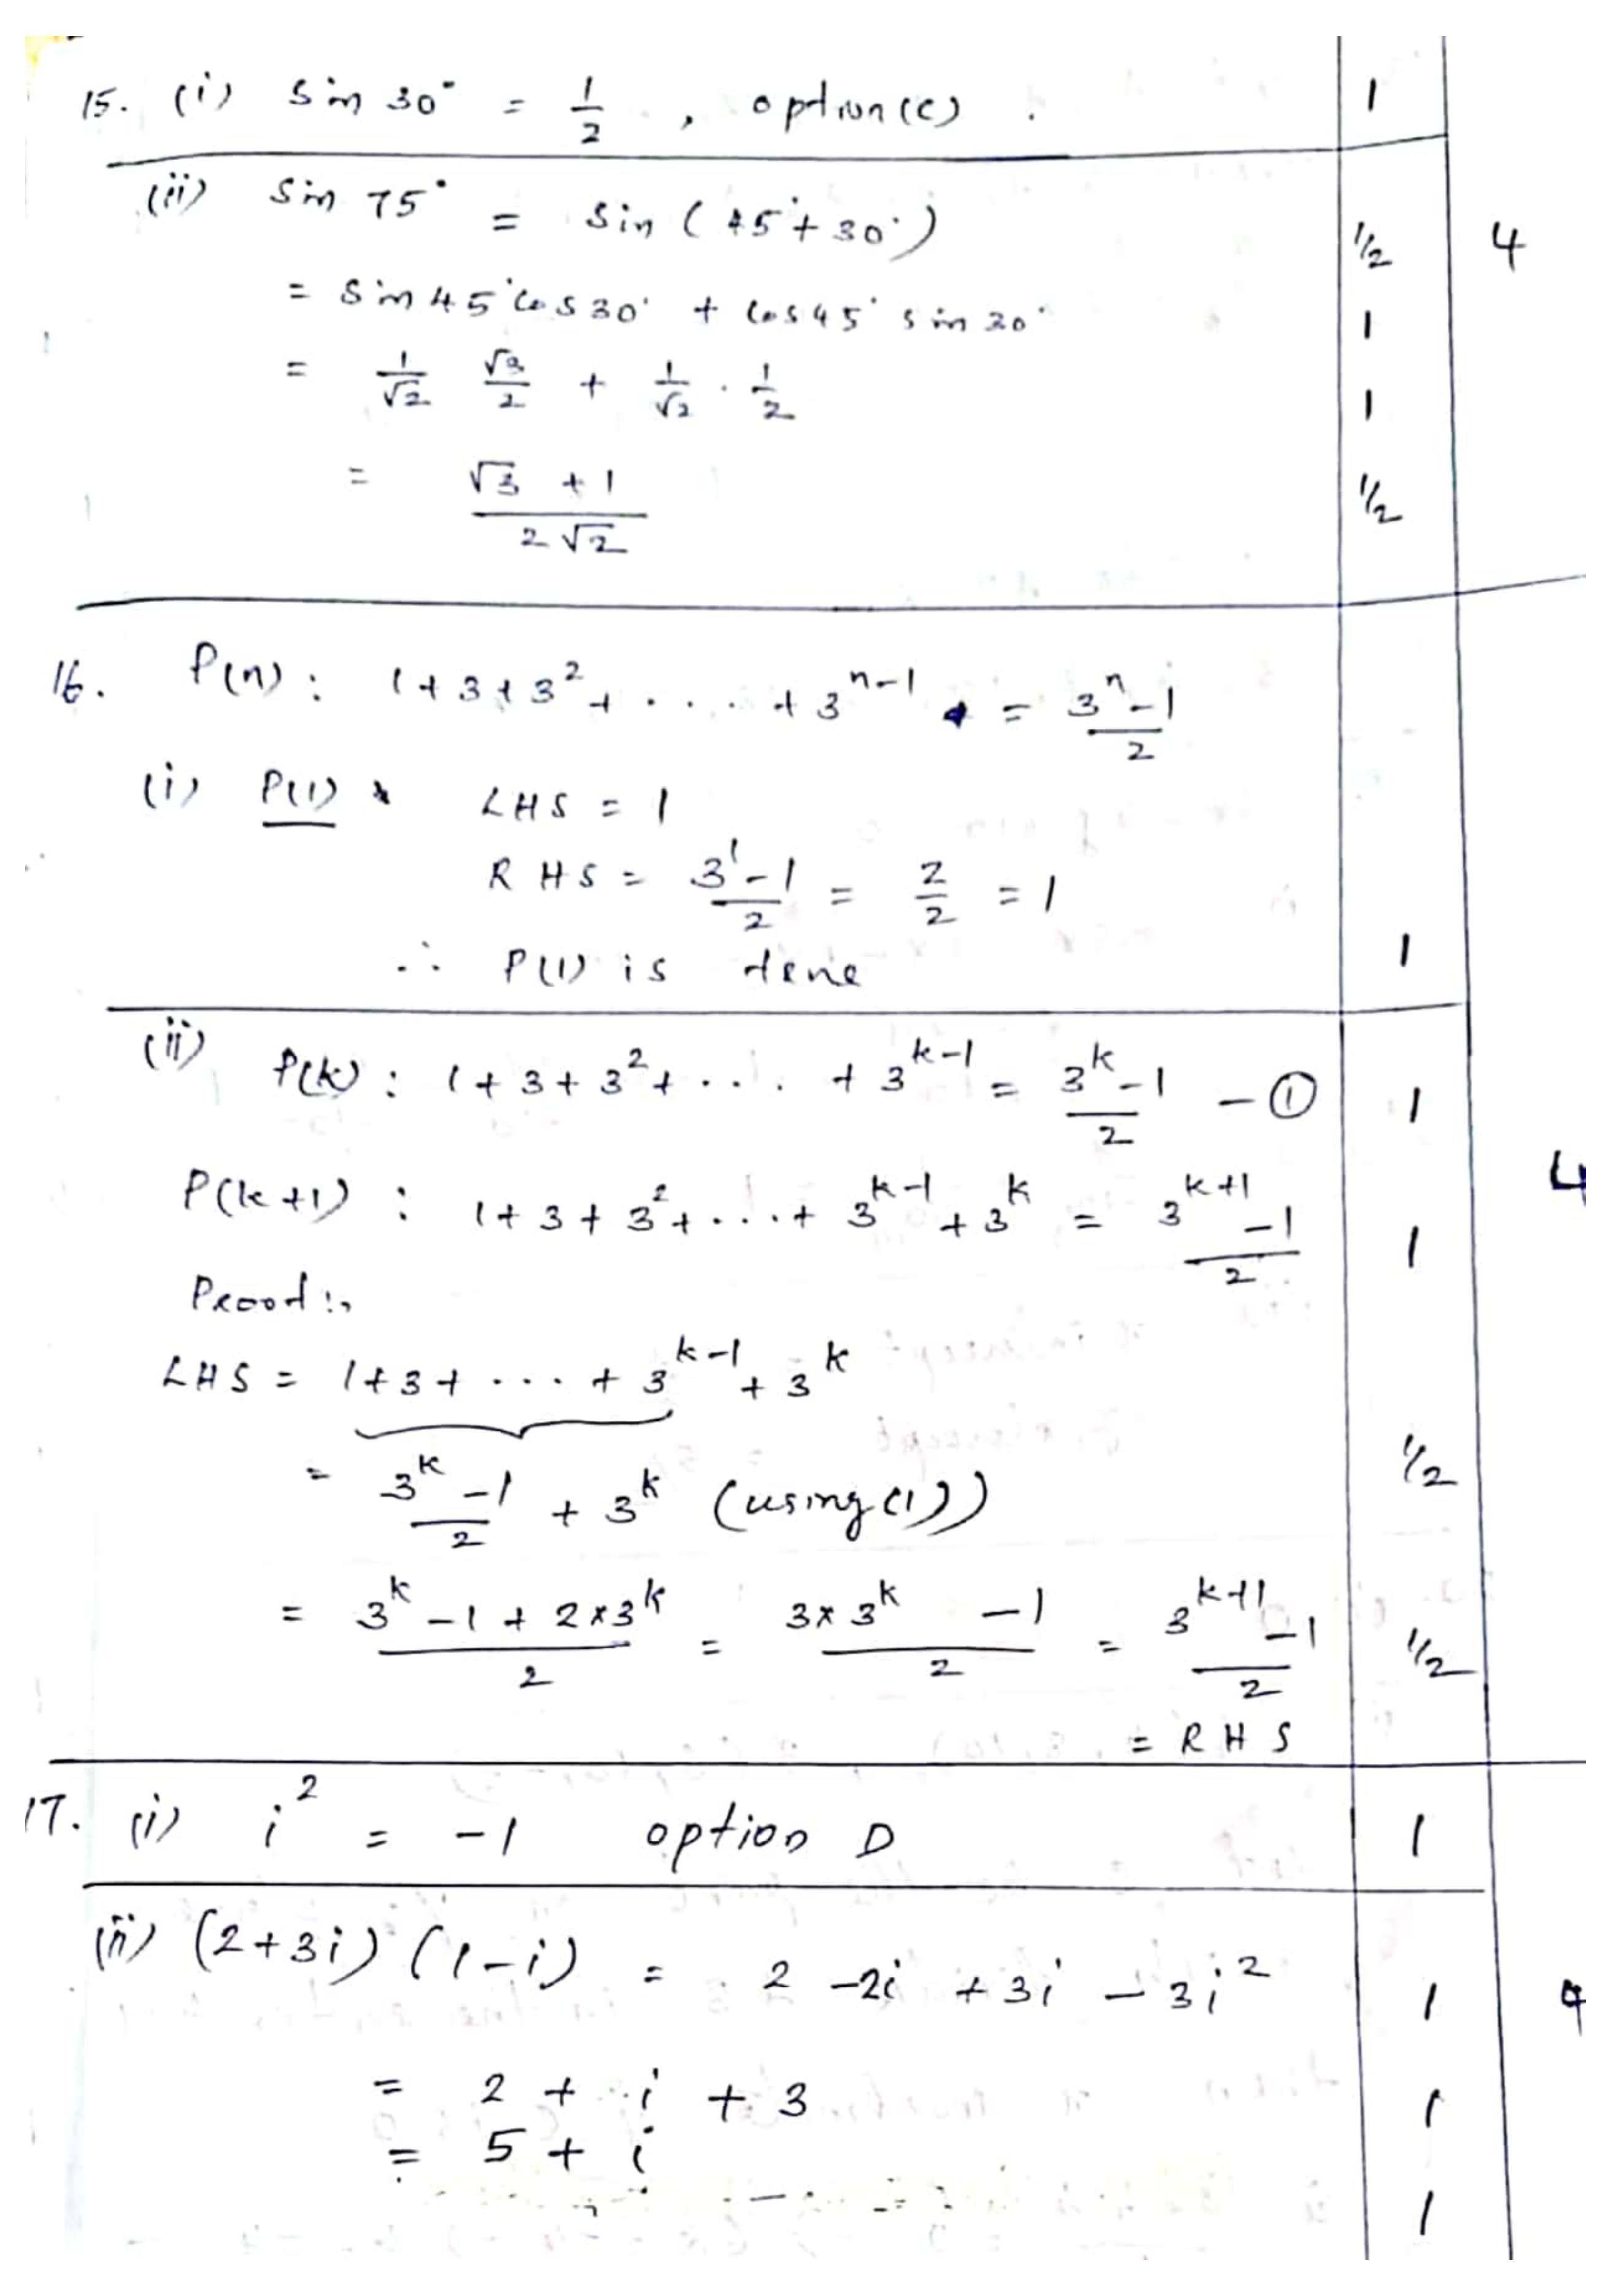 15. (i) sin 30° = 1/2 , option (c) . 1
(ii) sin 75° = sin (45° + 30°) 1/2 4
= sin 45° cos 30° + cos 45° sin 30° 1
= 1/√2 √3/2 + 1/√2 . 1/2 1
= (√3 + 1)/(2√2) 1/2
16. P(n) : 1 + 3 + 3² + . . . + 3ⁿ⁻¹ = (3ⁿ - 1)/2
(i) P(1) LHS = 1
RHS = (3¹ - 1)/2 = 2/2 = 1
∴ P(1) is true 1
(ii) P(k) : 1 + 3 + 3² + . . . + 3ᵏ⁻¹ = (3ᵏ - 1)/2 - ① 1
P(k+1) : 1 + 3 + 3² + . . . + 3ᵏ⁻¹ + 3ᵏ = (3ᵏ⁺¹ - 1)/2 1 4
Proof :-
LHS = 1 + 3 + . . . + 3ᵏ⁻¹ + 3ᵏ
= (3ᵏ - 1)/2 + 3ᵏ (using (1)) 1/2
= (3ᵏ - 1 + 2 × 3ᵏ)/2 = (3 × 3ᵏ - 1)/2 = (3ᵏ⁺¹ - 1)/2 1/2
= RHS
17. (i) i² = -1 option D 1
(ii) (2+3i) (1-i) = 2 - 2i + 3i - 3i² 1 4
= 2 + i + 3 1
= 5 + i
1